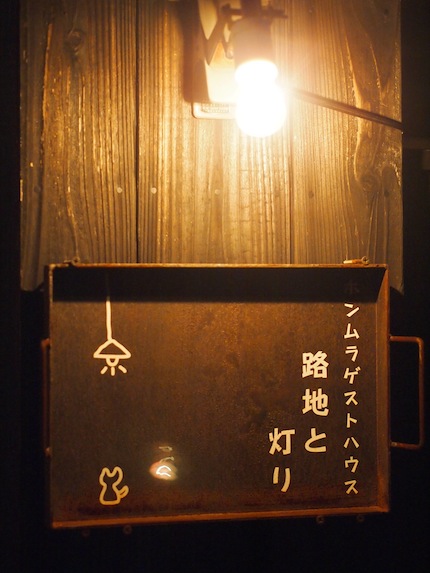 ホンムラゲストハウス
路地と
灯り